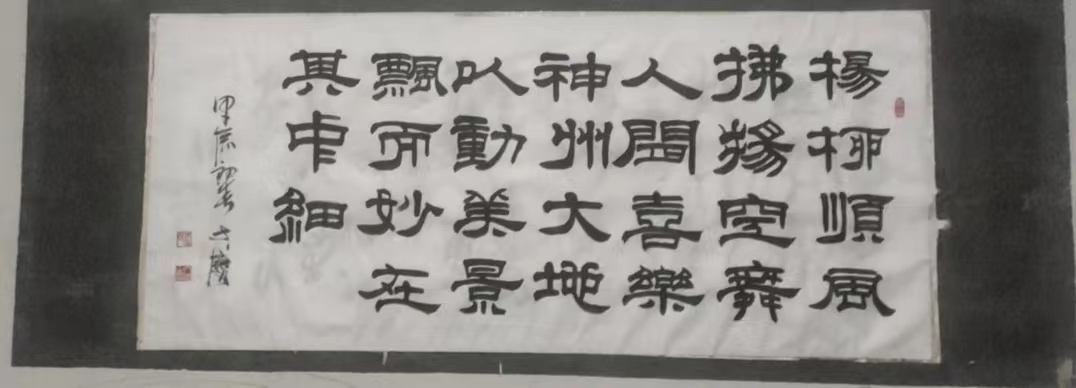 楊柳順風
拂揚空舞
人間喜樂
神州大地
以動美景
飄而妙在
其中細